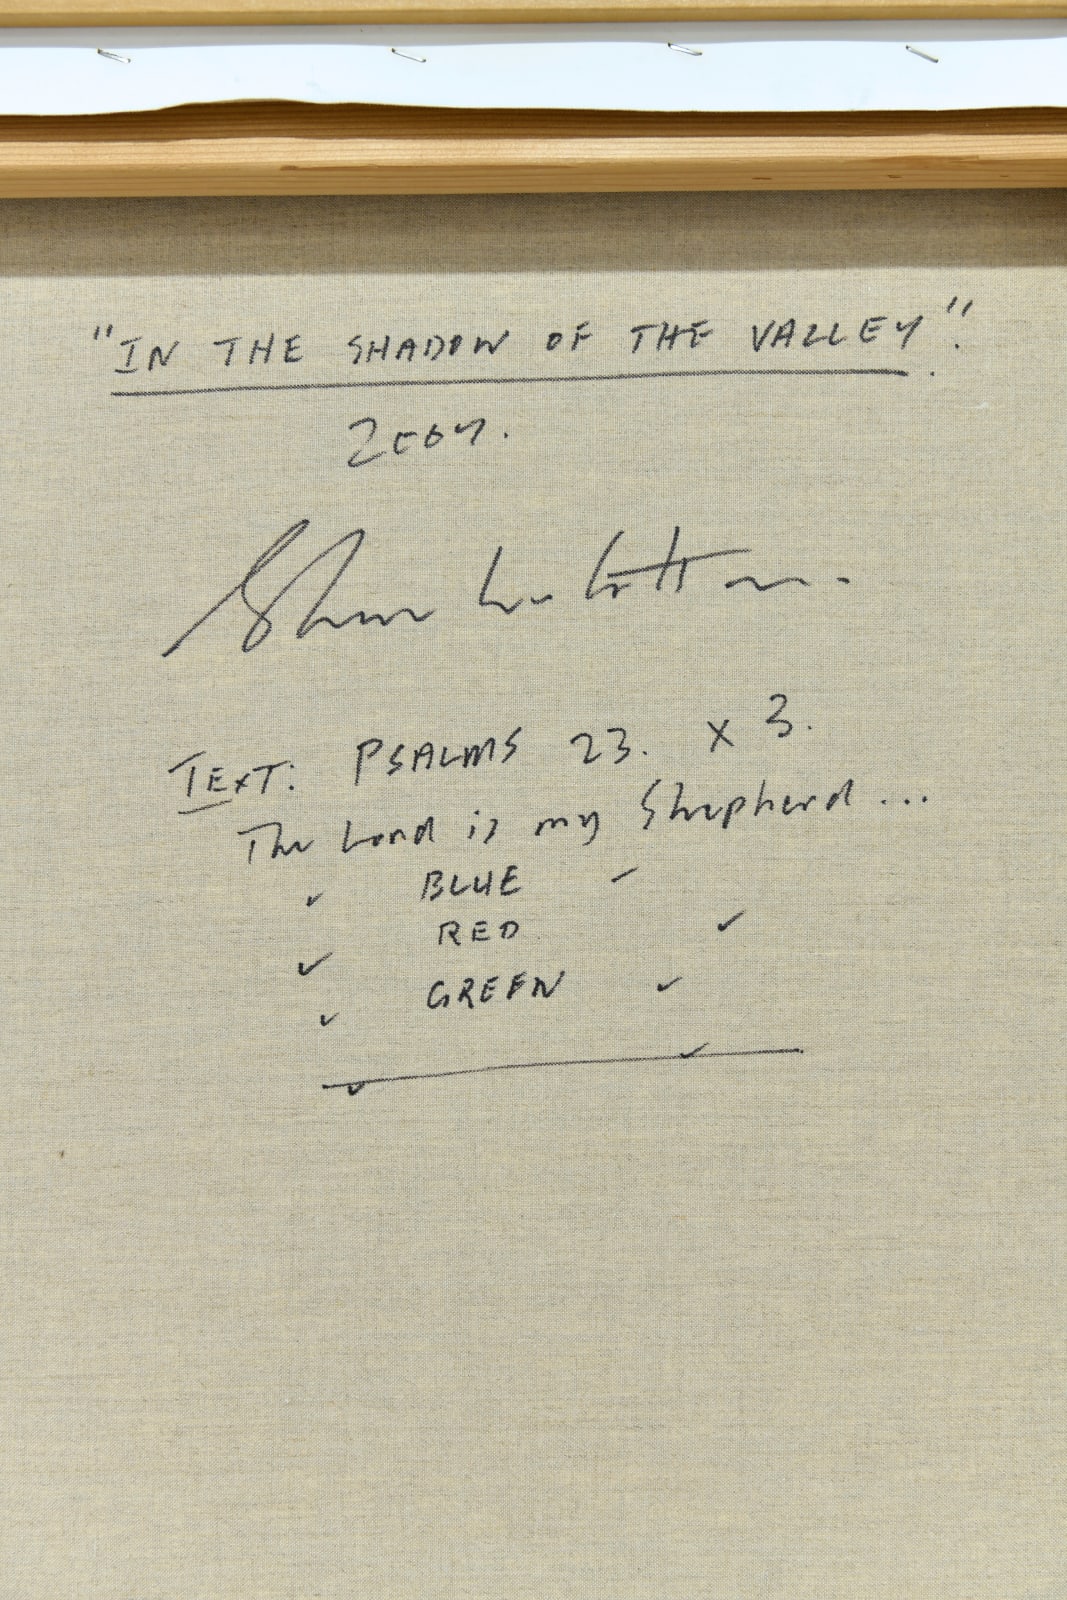 "IN THE SHADOW OF THE VALLEY".
Text: PSALMS 23. x 3.
The Lord is my Shepherd...
✓ BLUE ✓
✓ RED ✓
✓ GREEN ✓
✓ ✓